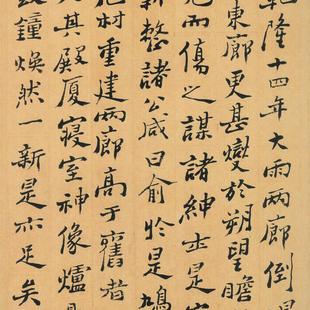 乾隆十四年大雨兩廊倒
東廊更甚變於朔望瞻
見而傷之謀諸紳士是
新整諸公咸曰俞於是鳩
村重建兩廊高于舊者
其殿厦寢室神像爐
鐘煥然一新是亦足矣